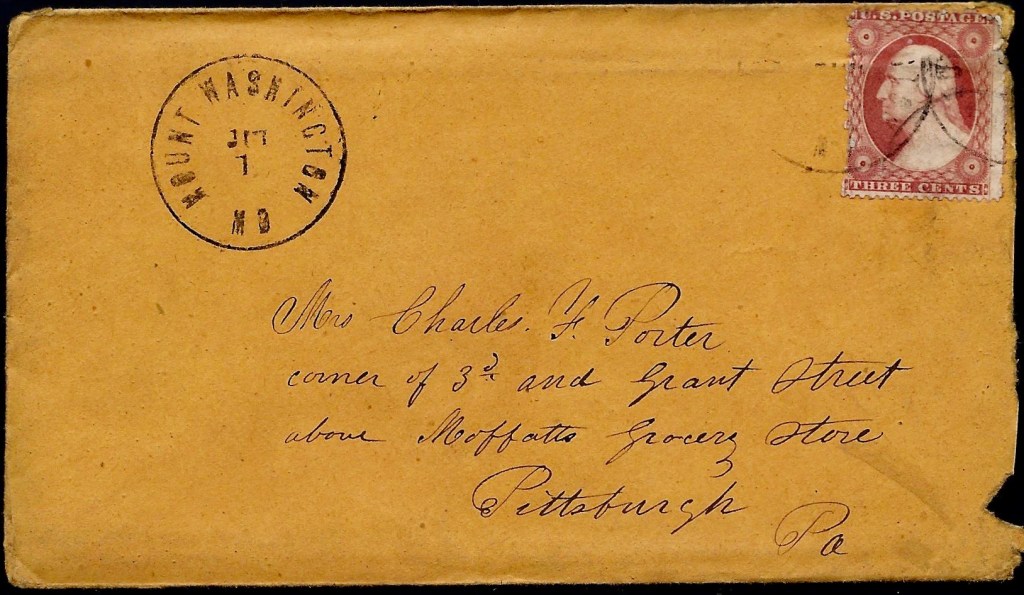 U.S. POSTAGE
THREE CENTS
MOUNT WASHINGTON
1
MD
Mrs Charles. F. Porter
corner of 3d and Grant Street
above Moffatts Grocery Store
Pittsburgh
Pa